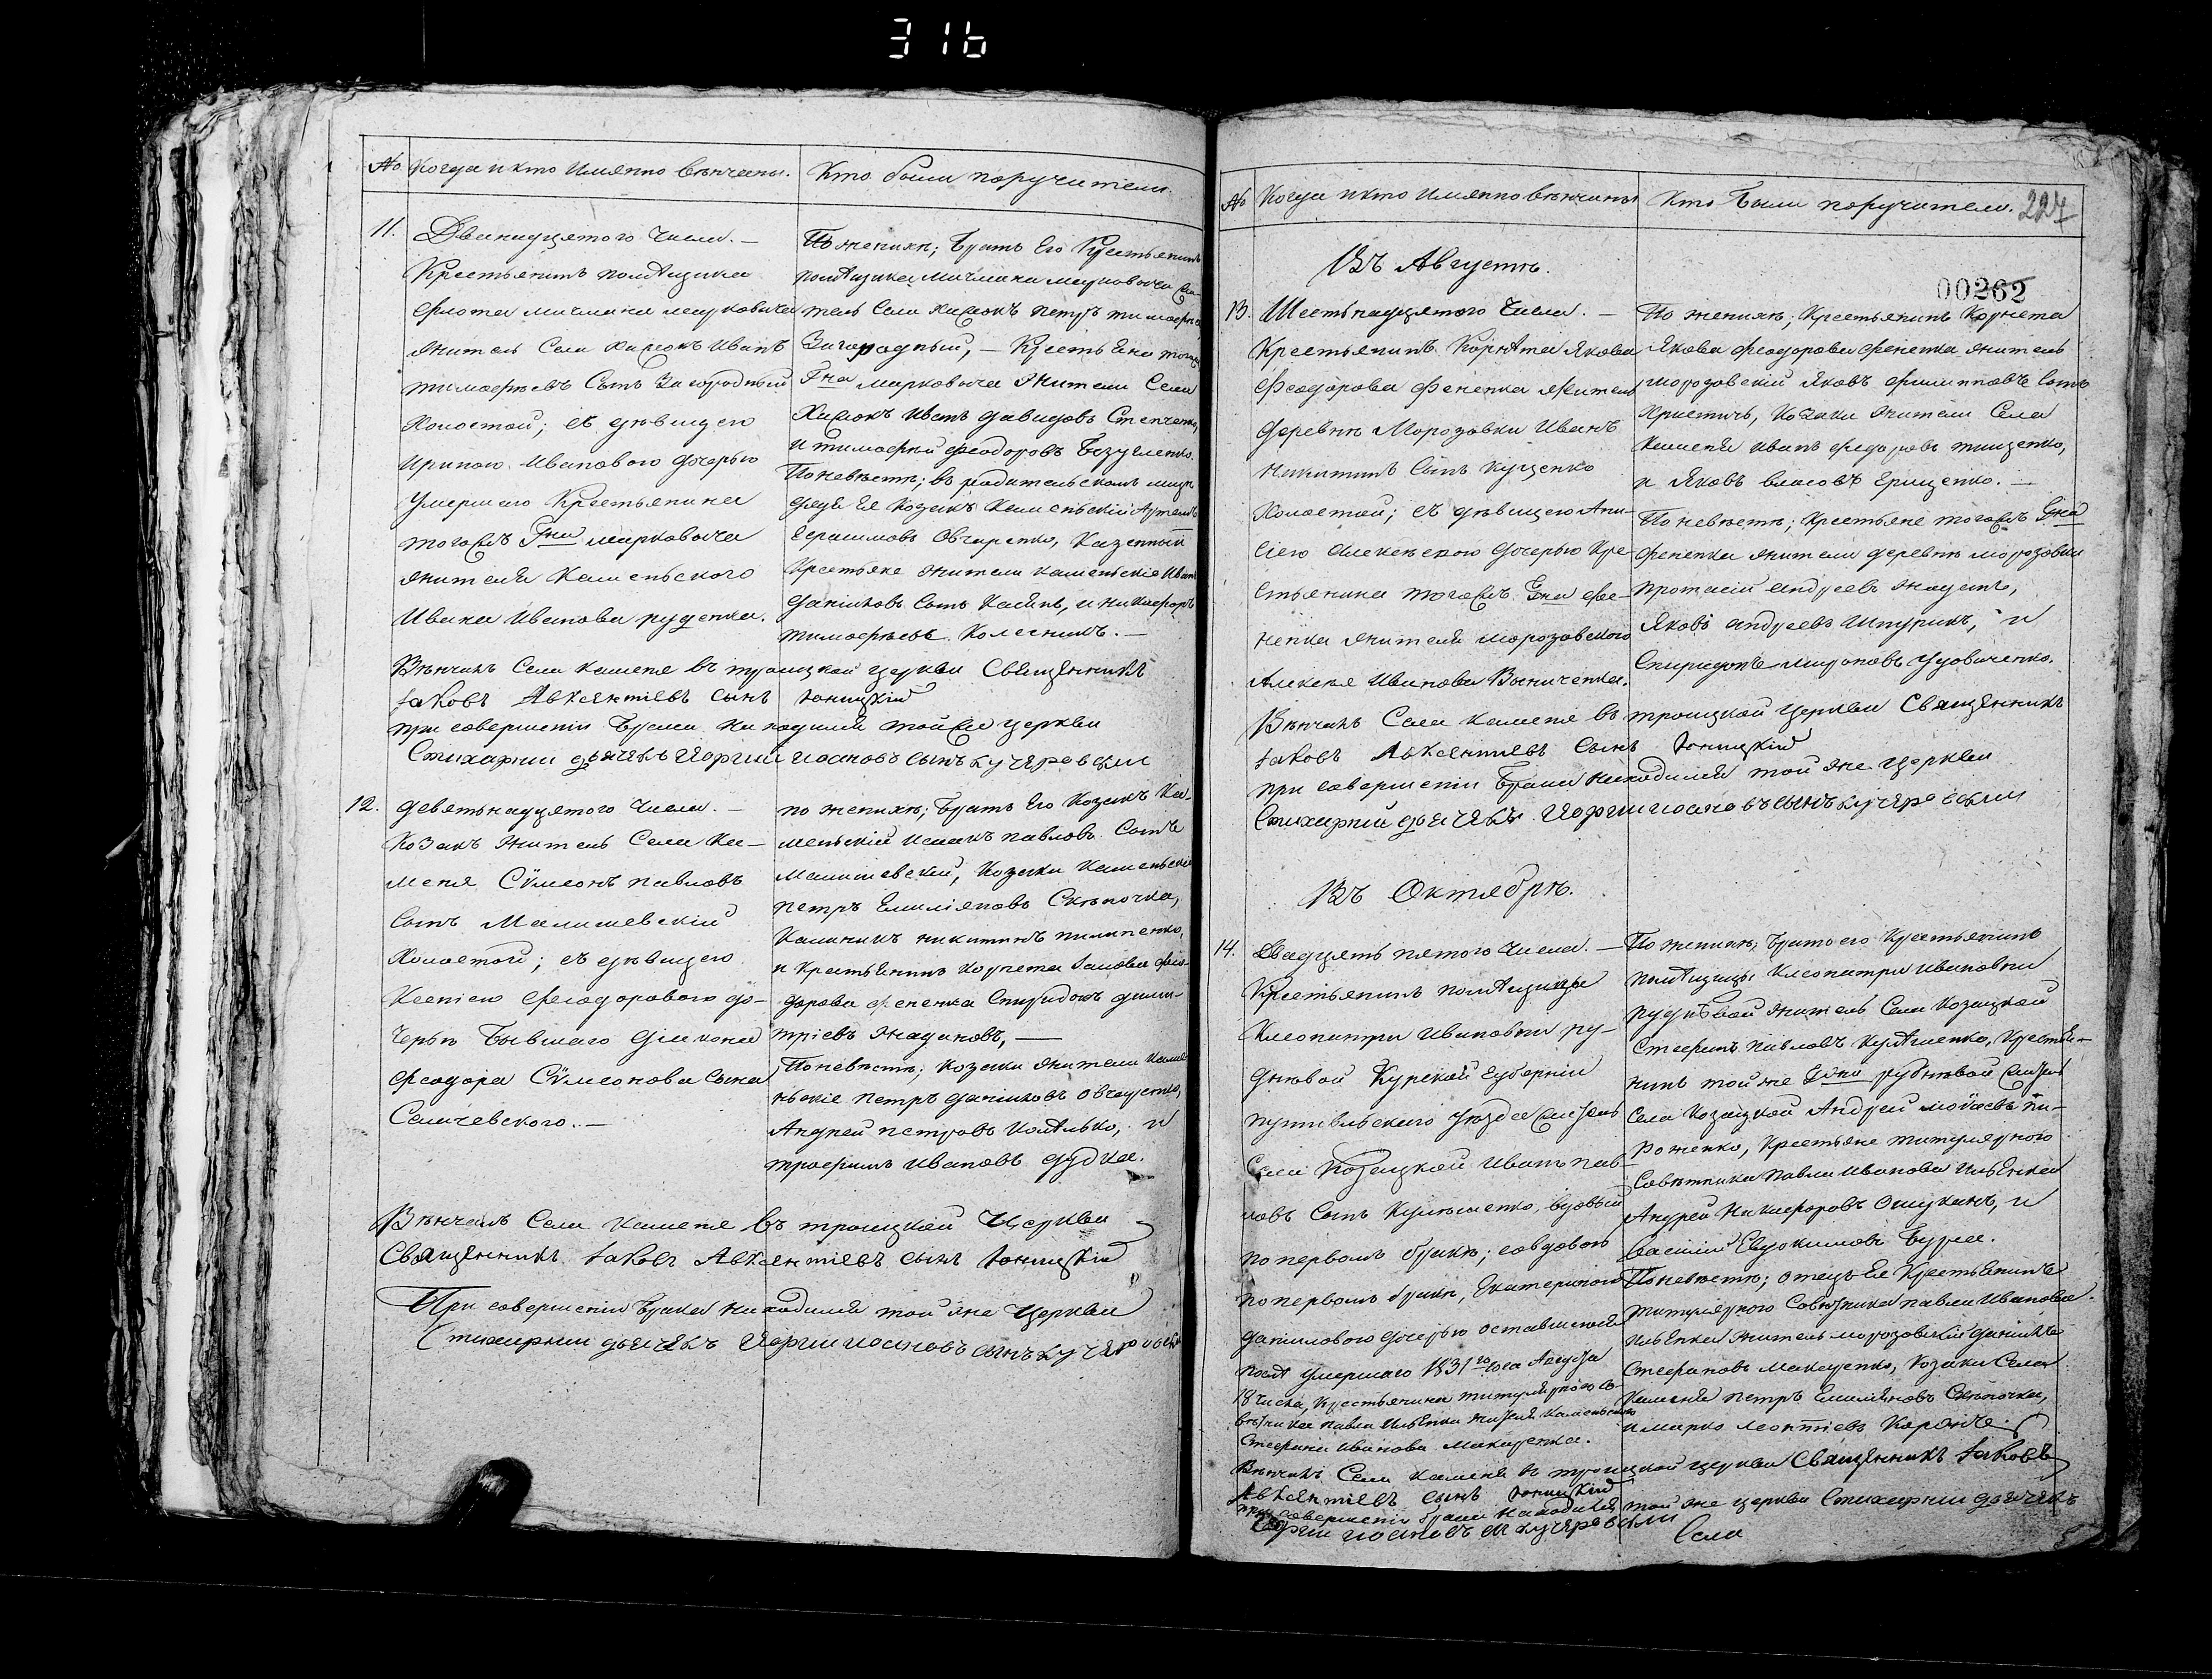 316
№ Когда и кто Имянно вѣнчаны. Кто были поручители.
11. Двенадцятого Числа. —
Крестьянинъ помѣщика
Флота мичмана марковича
житель Села Иванъ
тимофѣевъ Сынъ Загородный
Холостой; съ дѣвицею
Ириною Ивановою дочерью
Умершаго Крестьянина
тогожъ Гна марковича
жителя Каменьского
Ивана Иванова руденка.
По женихѣ; братъ Его Крестьянинъ
помѣщика Мичмана марковича жи-
тель Села петръ тимофѣевъ
Загородный, — Крестьяне тогожъ
Гна марковича жители Села
Иванъ давидовъ Степченко,
и тимофей феодоровъ
По невѣстѣ; въ родительскомъ мѣсте
дядя Ея козакъ Каменьскій Артемъ
Герасимовъ Овчаренко, Казенный
Крестьяне жители каменьскіе Иванъ
даниловъ Сынъ и никифоръ
тимофѣевъ Колесникъ. —
Вѣнчалъ Села каменя въ троицкой церкви Священникъ
Іаковъ Авксентіевъ сынъ Іоницкій
при совершеніи брака находился тойже церкви
Стихарный дьячекъ Иоргий иоановъ сынъ кучеровский
12. девятьнадцятого Числа. —
Козакъ житель Села Ка-
меня Сѵмеонъ павловъ
Сынъ Малишевскій
Холостой; съ дѣвицею
Ксеніею феодоровою до-
черью бывшаго діякона
феодора Сѵмеонова Сына
Саичевского. —
по женихѣ; братъ Его Козакъ Ка-
меньскій Исаакъ павловъ Сынъ
Малишевскій, Козаки Каменьскіе
петръ Емиліяновъ Скѣпочка,
Калиникъ никитинъ пилипенко,
и Крестьянинъ корнета Іакова фео-
дорова фененка Спиридонъ дими-
тріевъ Жадановъ, —
По невѣстѣ; козаки жители Каме-
ньскіе петръ даниловъ
Андрей петровъ и
трофимъ Ивановъ дудка.
Вѣнчалъ Села каменя въ троицкой Церкви
Священникъ Іаковъ Авксентіевъ сынъ Іоницкій
При совершеніи брака находился той же Церкви
Стихарный дьячекъ Иоргий иоановъ сынъ кучеровский
№ Когда и кто Имянно вѣнчаны Кто были поручители. 224
00262
Въ Августѣ.
13. Шестьнадцятого Числа. —
Крестьянинъ Корнѣта Якова
Феодорова Фененка житель
деревнѣ Морозовки Иванъ
никитинъ Сынъ Куценко
Холостой; съ дѣвицею Ани-
сіею Алексѣевою дочерью Кре-
стьянина тогожъ Гна Фе-
ненка жителя морозовского
Алексѣя Иванова Винниченка.
По женихѣ; Крестьянинъ Корнета
Якова феодорова Фененка житель
морозовский Яковъ филипповъ Сынъ
Христичъ, Козаки жители Села
Каменя Иванъ федоровъ тищенко,
и Яковъ власовъ Ерищенко. —
По невѣстѣ; Крестьяне тогожъ Гна
фененка жители деревнѣ морозовки
протасій андреевъ
Яковъ андреевъ и
Спиридонъ мироновъ Удовиченко.
Вѣнчалъ Села каменя въ троицкой церкви Священникъ
Іаковъ Авксентіевъ Сынъ Іоницкій
при совершеніи брака находился той же церкви
Стихарний дьячекъ Иоргии иоановъ сынъ кучеровский
Въ Октябрѣ.
14. Двадцять пятого Числа. —
Крестьянинъ помѣщицы
Клеопатри Ивановни ру-
дневой Курской Губерніи
путивльского уѣзда житель
Села Козацкой Иванъ пав-
ловъ Сынъ вдовый
по первомъ бракѣ; со вдовою
по первомъ бракѣ, Екатериною
даниловою дочерью оставшеюся
послѣ умершаго 1831 го года Августа
18 числа, крестьянина титулярного со-
вѣтника павла жителя каменьского
Стефана Иванова Макаренка.
По женихѣ; братъ его Крестьянинъ
помѣщицы Клеопатри Ивановни
рудневой житель Села Козацкой
Стефанъ павловъ Крестья-
нинъ той же Гжи рудневой житель
села Козацкой Андрей
Крестьяне титулярного
Совѣтника павла Иванова
Андрей Никифоровъ и
Василій Евдокимовъ
По невѣстѣ; отецъ Ея Крестьянинъ
титулярного Совѣтника павла Иванова
житель морозовскій данило
Стефановъ Козаки Села
Каменя петръ Емиліяновъ Скѣпочка,
и марко леонтіевъ
Вѣнчалъ Села каменя въ троицкой церкви Священникъ Іаковъ
Авксентіевъ сынъ Іоницкій
при совершеніи брака находился той же церкви Стихарний дьячекъ
Иоргии иоановъ кучеровский
Села